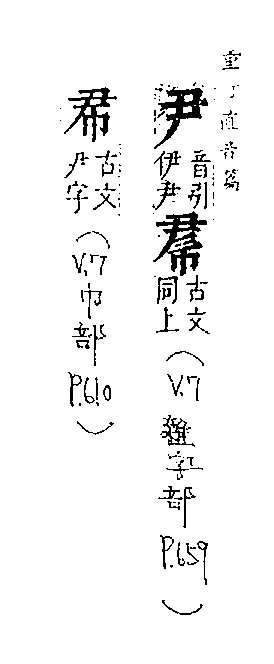 重丁直音篇
尹 音引伊尹 古文同上（V.7 雜字部 P.659）
古文尹字（V.7 巾部 P.610）